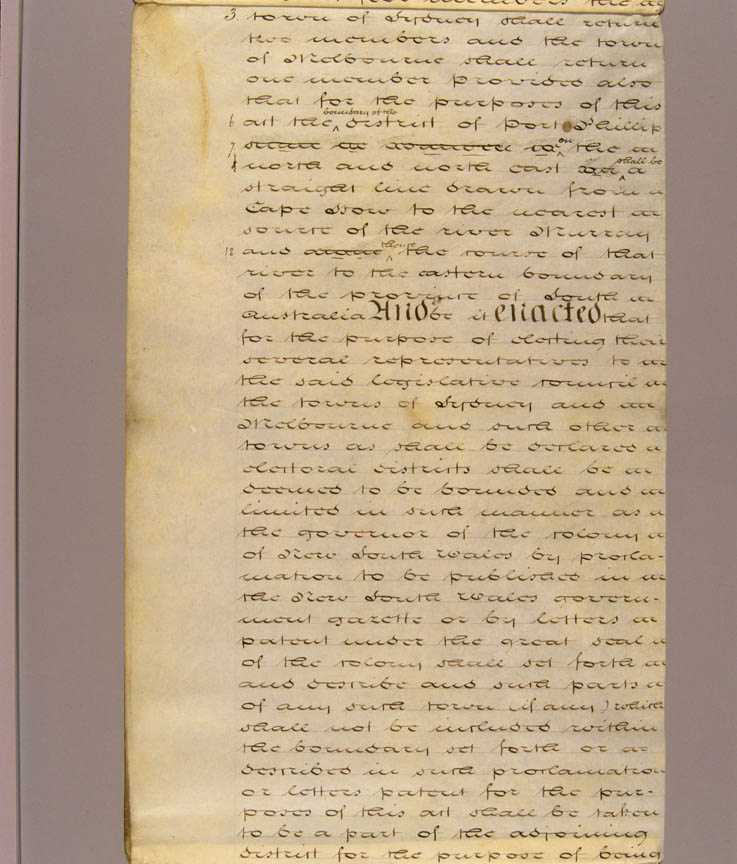 members the
3 town of Sydney shall return
two members and the town
of Melbourne shall return
one member provided also
that for the purposes of this
boundary of the
6 act the ^ district of Port Phillip
on
7 the
shall be
8 north and north east ^ a
straight line drawn from
Cape How to the nearest
source of the river Murray
thence
12 and ^ the course of that
river to the eastern boundary
of the province of South
Australia And be it enacted that
for the purpose of electing their
several representatives to
the said legislative council
the towns of Sydney and
Melbourne and such other
towns as shall be declared
electoral districts shall be
deemed to be bounded and
limited in such manner as
the governor of the colony
of New South Wales by procla-
mation to be published in
the New South Wales govern-
ment gazette or by letters
patent under the great seal
of the colony shall set forth
and describe and such parts
of any such town (if any) which
shall not be included within
the boundary set forth or
described in such proclamation
or letters patent for the pur-
poses of this act shall be taken
to be a part of the adjoining
district for the purpose of being